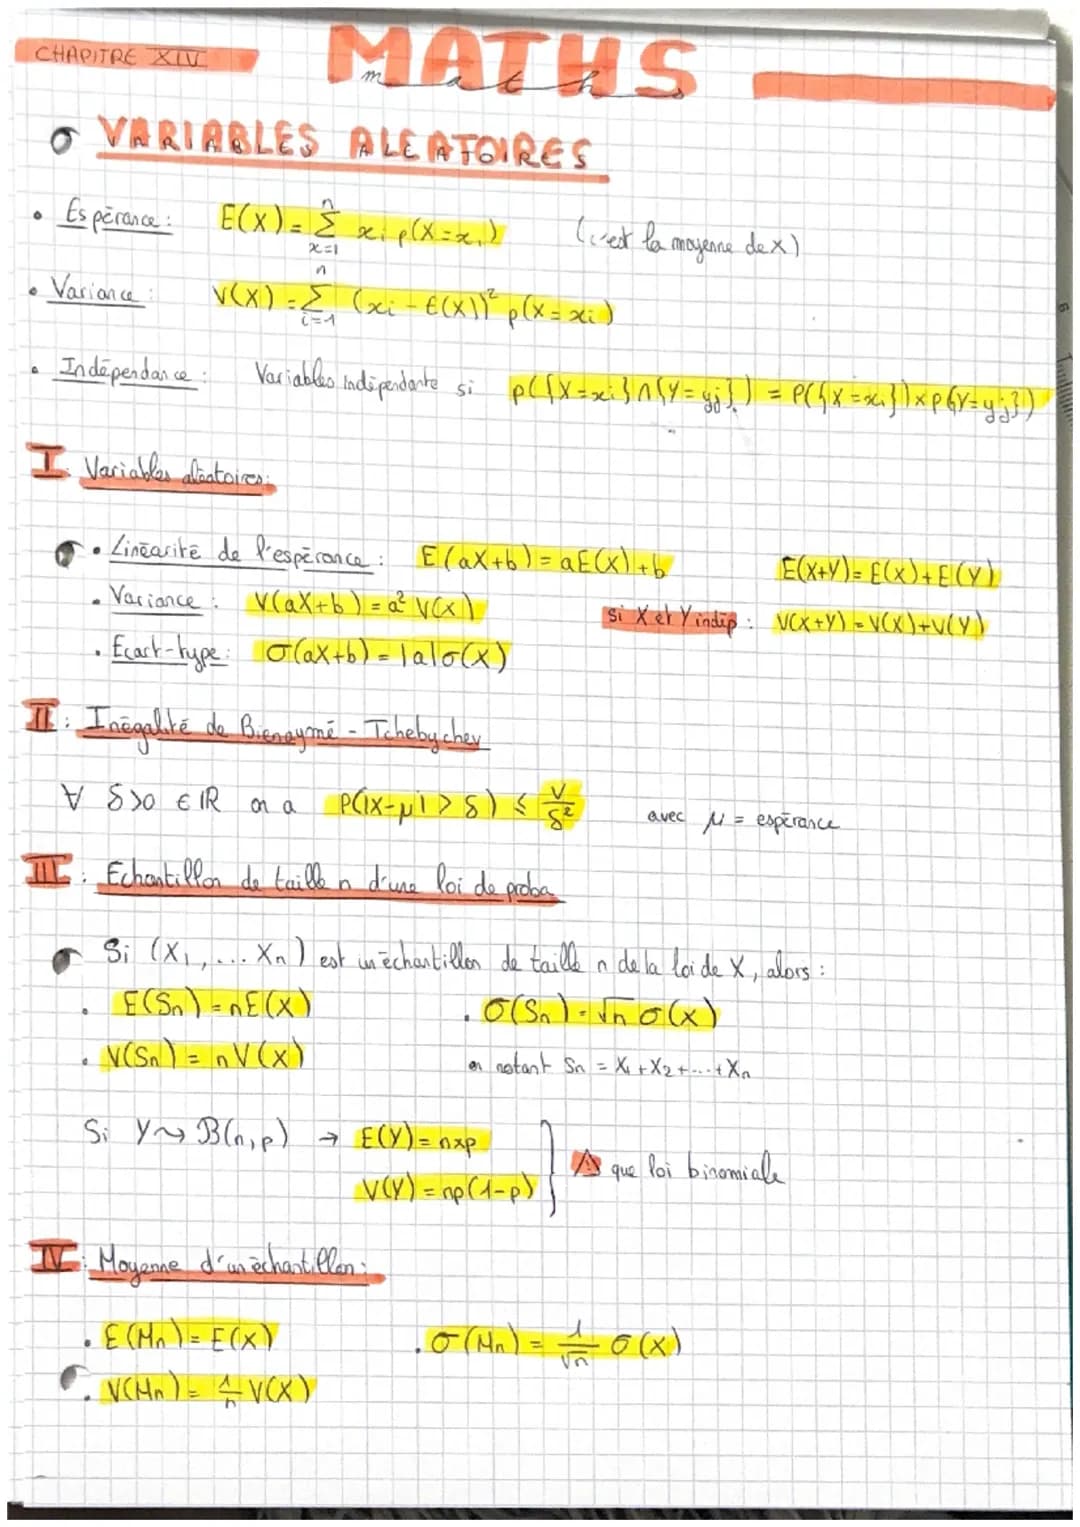 CHAPITRE XIV
MATHS
maths
VARIABLES ALEATOIRES
• Espérance : E(X) = Σ xi p(X=xi) (c'est la moyenne de X)
n
x=1
• Variance : V(X) = Σ (xi - E(X))² p(X=xi)
n
i=1
• Indépendance : Variables indépendante si p({X=xi}∩{Y=yj}) = P({X=xi})×p{Y=yj})
I Variables aléatoires :
• Linéarité de l'espérance : E(aX+b) = aE(X)+b E(X+Y) = E(X)+E(Y)
• Variance : V(aX+b) = a² V(X) si X et Y indép : V(X+Y) = V(X)+V(Y)
• Ecart-type : σ(aX+b) = |a|σ(X)
II : Inégalité de Bienaymé - Tchebychev
∀ δ>0 ∈ IR on a P(|X-μ| > δ) ≤ V/δ² avec μ = espérance
III : Echantillon de taille n d'une loi de proba
Si (X₁, ... Xn) est un échantillon de taille n de la loi de X, alors :
• E(Sn) = nE(X) • σ(Sn) = √n σ(X)
• V(Sn) = nV(X) en notant Sn = X₁+X₂+...+Xn
Si Y ↝ B(n,p) → E(Y) = n×p
V(Y) = np(1-p) } ⚠ que loi binomiale
IV : Moyenne d'un échantillon :
• E(Mn) = E(X) • σ(Mn) = 1/√n σ(X)
• V(Mn) = 1/n V(X)